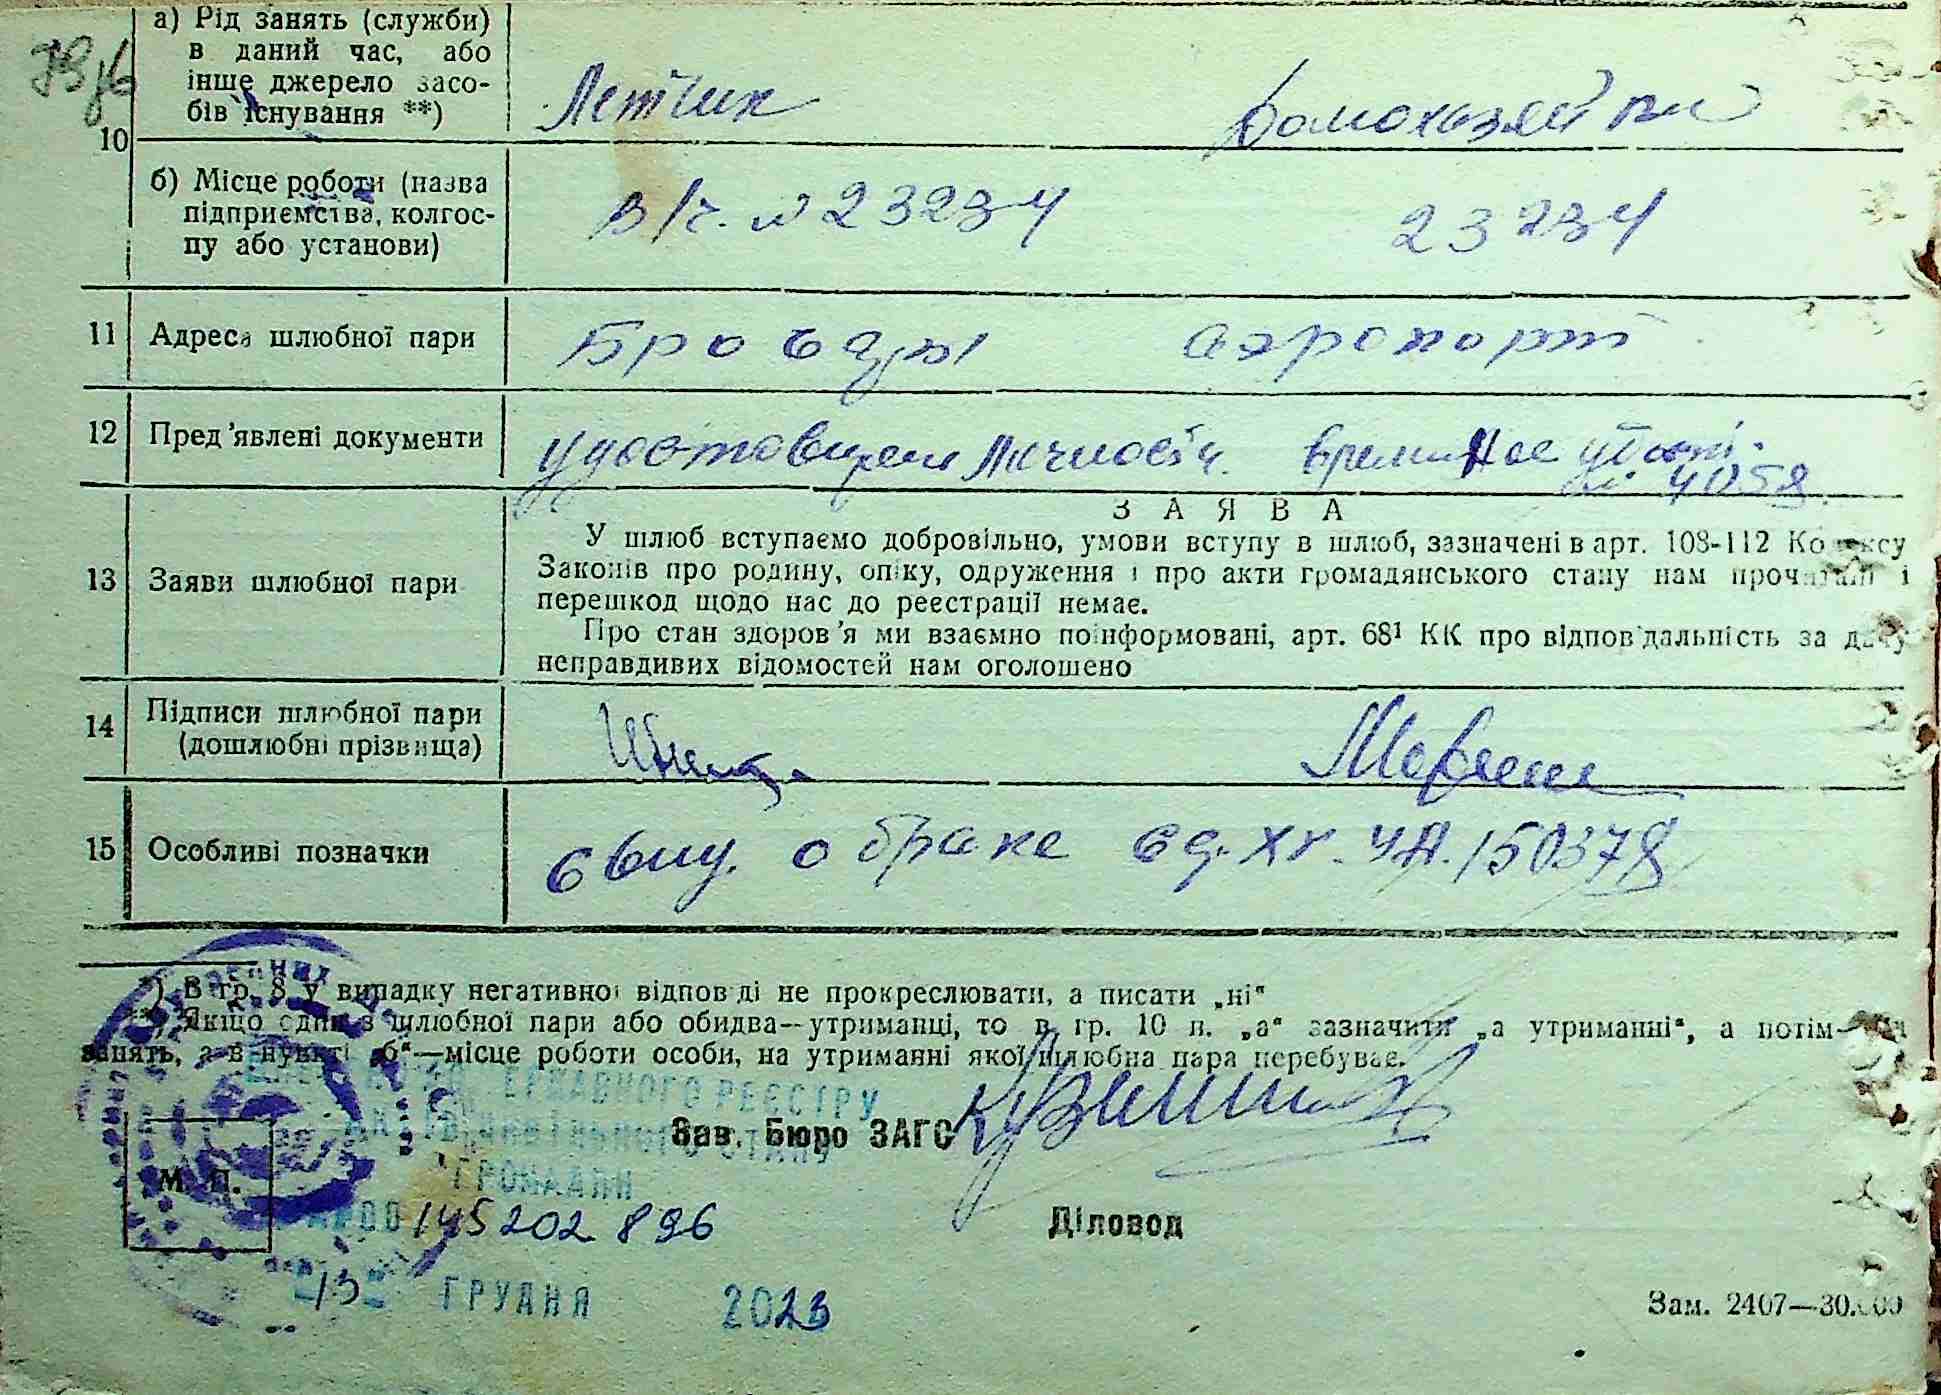 а) Рід занять (служби)
в даний час, або
інше джерело засо-
бів існування **)
Летчик
Домохозяйка
10
б) Місце роботи (назва
підприємства, колгос-
пу або установи)
В/ч. № 23234
23234
11 Адреса шлюбної пари
Броды аэропорт
12 Пред'явлені документи
удостоверен личности. временное удост.
№ 4058
ЗАЯВА
13 Заяви шлюбної пари
У шлюб вступаємо добровільно, умови вступу в шлюб, зазначені в арт. 108-112 Кодексу
Законів про родину, опіку, одруження і про акти громадянського стану нам прочитані і
перешкод щодо нас до реєстрації немає.
Про стан здоров'я ми взаємно поінформовані, арт. 68¹ КК про відповідальність за дачу
неправдивих відомостей нам оголошено
14 Підписи шлюбної пари
(дошлюбні прізвища)
15 Особливі позначки
о браке
150378
*) В гр. 8 у випадку негативної відповіді не прокреслювати, а писати „ні"
**) Якщо один з шлюбної пари або обидва—утриманці, то в гр. 10 п. „а" зазначити „а утриманні", а потім—
занять, а в пункті „б"—місце роботи особи, на утриманні якої шлюбна пара перебуває.
ДЕРЖАВНОГО РЕЄСТРУ
АКТІВ ЦИВІЛЬНОГО СТАНУ
ГРОМАДЯН
Зав. Бюро ЗАГС
М. П.
145202896
Діловод
13 ГРУДНЯ 2023
Зам. 2407—30.000